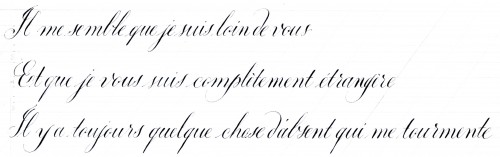 Il me semble que je suis loin de vous
Et que je vous suis complitement étrangère
Il y a toujours quelque chose d'absent qui me tourmente